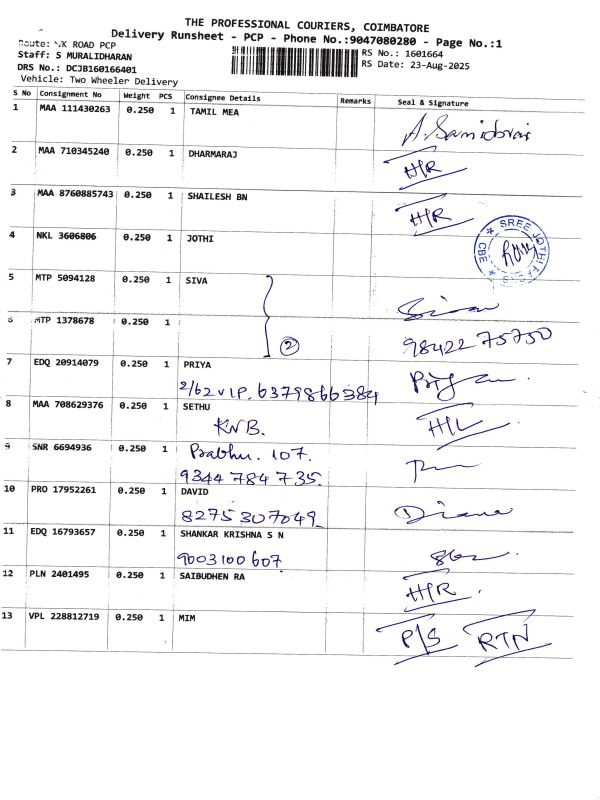 THE PROFESSIONAL COURIERS, COIMBATORE
Delivery Runsheet - PCP - Phone No.:9047080280 - Page No.:1
Route: VK ROAD PCP
RS No.: 1601664
Staff: S MURALIDHARAN
RS Date: 23-Aug-2025
DRS No.: DCJB160166401
Vehicle: Two Wheeler Delivery
S No Consignment No Weight PCS Consignee Details Remarks Seal & Signature
1 MAA 111430263 0.250 1 TAMIL MEA
2 MAA 710345240 0.250 1 DHARMARAJ H/R
3 MAA 8760885743 0.250 1 SHAILESH BN H/R
4 NKL 3606806 0.250 1 JOTHI
SREE JOTHI CBE
5 MTP 5094128 0.250 1 SIVA
6 MTP 1378678 0.250 1 98422 75750
2
7 EDQ 20914079 0.250 1 PRIYA
2/62 VIP. 6379866384
8 MAA 708629376 0.250 1 SETHU H/L
KNB.
9 SNR 6694936 0.250 1 Prabhu. 107.
9344 784 735.
10 PRO 17952261 0.250 1 DAVID Diana
8275307049
11 EDQ 16793657 0.250 1 SHANKAR KRISHNA S N
9003100607
12 PLN 2401495 0.250 1 SAIBUDHEN RA H/R.
13 VPL 228812719 0.250 1 MIM P/S RTN